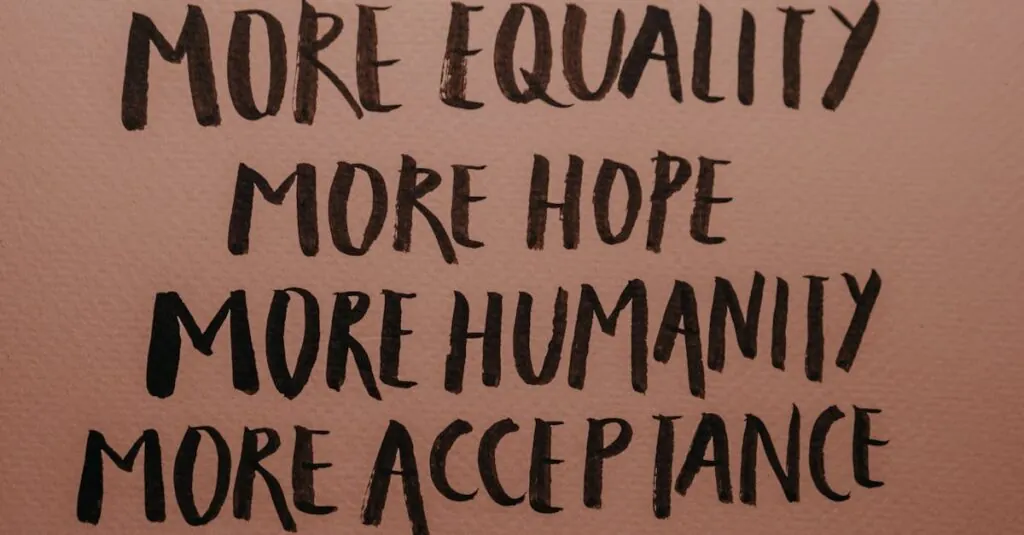 MORE EQUALITY
MORE HOPE
MORE HUMANITY
MORE ACCEPTANCE